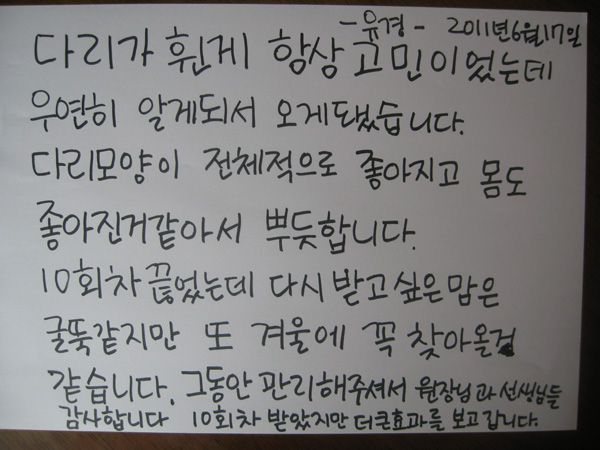 -유경- 2011년6월17일
다리가 휜게 항상 고민이었는데
우연히 알게되서 오게됐습니다.
다리모양이 전체적으로 좋아지고 몸도
좋아진거같아서 뿌듯합니다.
10회차 끊었는데 다시 받고싶은맘은
굴뚝같지만 또 겨울에 꼭 찾아올것
같습니다. 그동안 관리해주셔서 원장님과 선생님들
감사합니다 10회차 받았지만 더큰효과를 보고갑니다.